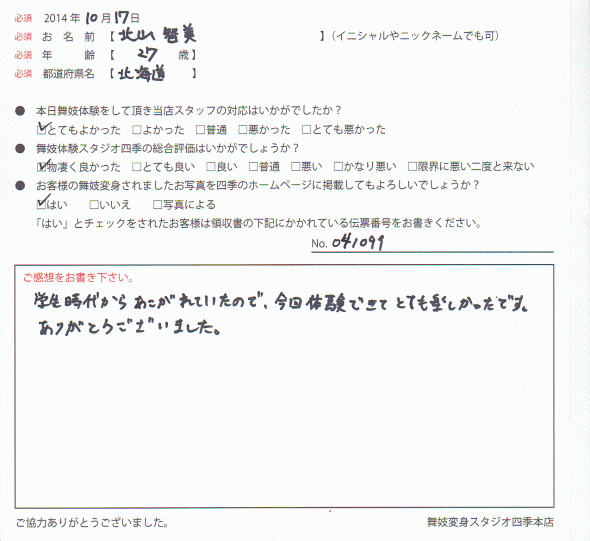 必須 2014年10月17日
必須 お名前 【 北山 智美 】(イニシャルやニックネームでも可)
必須 年齢 【 27 歳】
必須 都道府県名 【 北海道 】
● 本日舞妓体験をして頂き当店スタッフの対応はいかがでしたか？
☑とてもよかった □よかった □普通 □悪かった □とても悪かった
● 舞妓体験スタジオ四季の総合評価はいかがでしょうか？
☑物凄く良かった □とても良い □良い □普通 □悪い □かなり悪い □限界に悪い二度と来ない
● お客様の舞妓変身されましたお写真を四季のホームページに掲載してもよろしいでしょうか？
☑はい □いいえ □写真による
「はい」とチェックをされたお客様は領収書の下記にかかれている伝票番号をお書きください。
No. 041099
ご感想をお書き下さい。
学生時代からあこがれていたので、今回体験できてとても楽しかったです。
ありがとうございました。
ご協力ありがとうございました。 舞妓変身スタジオ四季本店